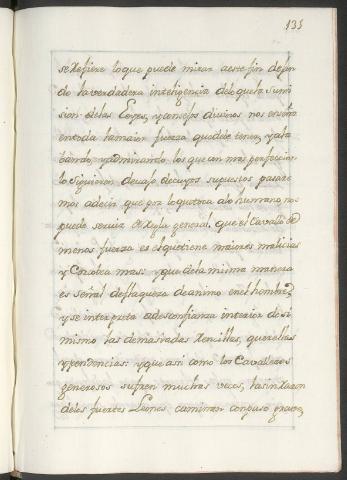 135
se Refiere loque puede mirar aeste fin desin
do la verdadera inteligencia delo que la Sumi
sion delas Leyes, y consejos divinos nos enseña
entoda lamaior fuerza quedeve tener, y ala
bando, y admirando, los que con mas perfeccion
lo siguieron decuyo supuestos pasare
mos adecir que por loquetoca alo humano, nos
puede servir de Regla general, que el Cavallo de
menos fuerza es el quetiene maiores malicias
y Corcobea mas: y que dela misma manera
es señal deflaqueza deanimo en el hombre,
y se interpreta adesconfianza interior desi
mismo las demasiadas Rencillas, querellas
y pendencias: y que asi como los Cavalleros
generosos sufren muchas veces, la sin Razon
delos fuertes Leones caminan con paso grave,